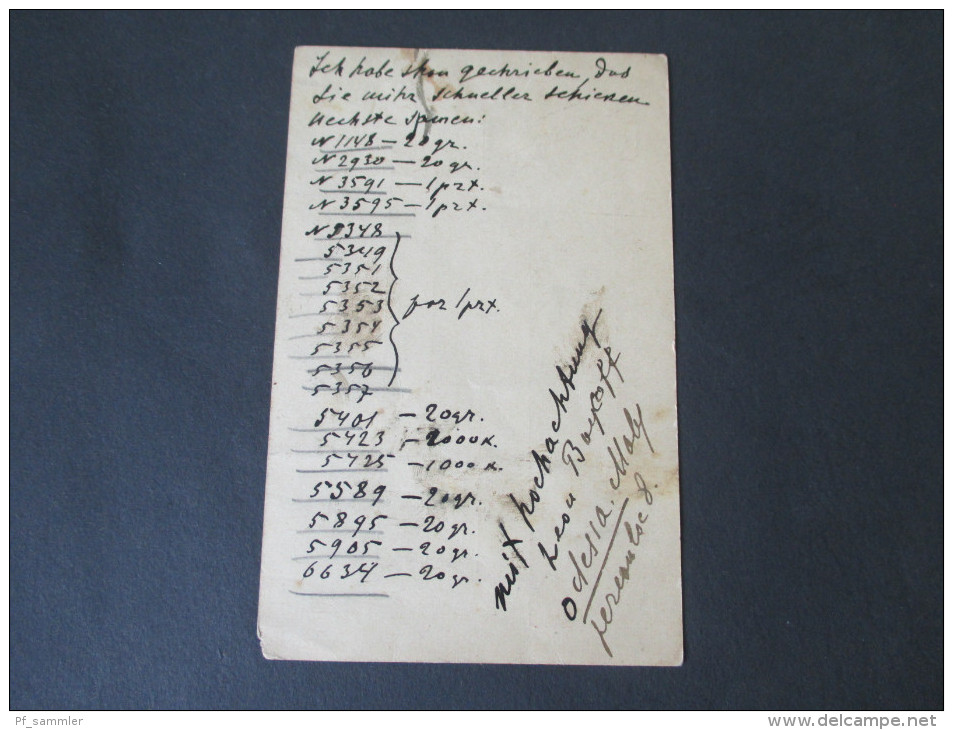 Ich habe shon geschrieben, das
Sie mihr schneller schicken
nechste samen:
N 1148 — 20 gr.
N 2930 — 20 gr.
N 3591 — 1 prt.
N 3595 — 1 prt.
N 5348
5349
5351
5352
5353 por 1 prt.
5354
5355
5356
5357
5401 — 20 gr.
5423 — 2000 K.
5425 — 1000 K.
5589 — 20 gr.
5895 — 20 gr.
5905 — 20 gr.
6634 — 20 gr.
mit hochachtung
Leon Boycoff
Odessa. Maly
pereulok 8.
Pf_sammler
www.delcampe.net